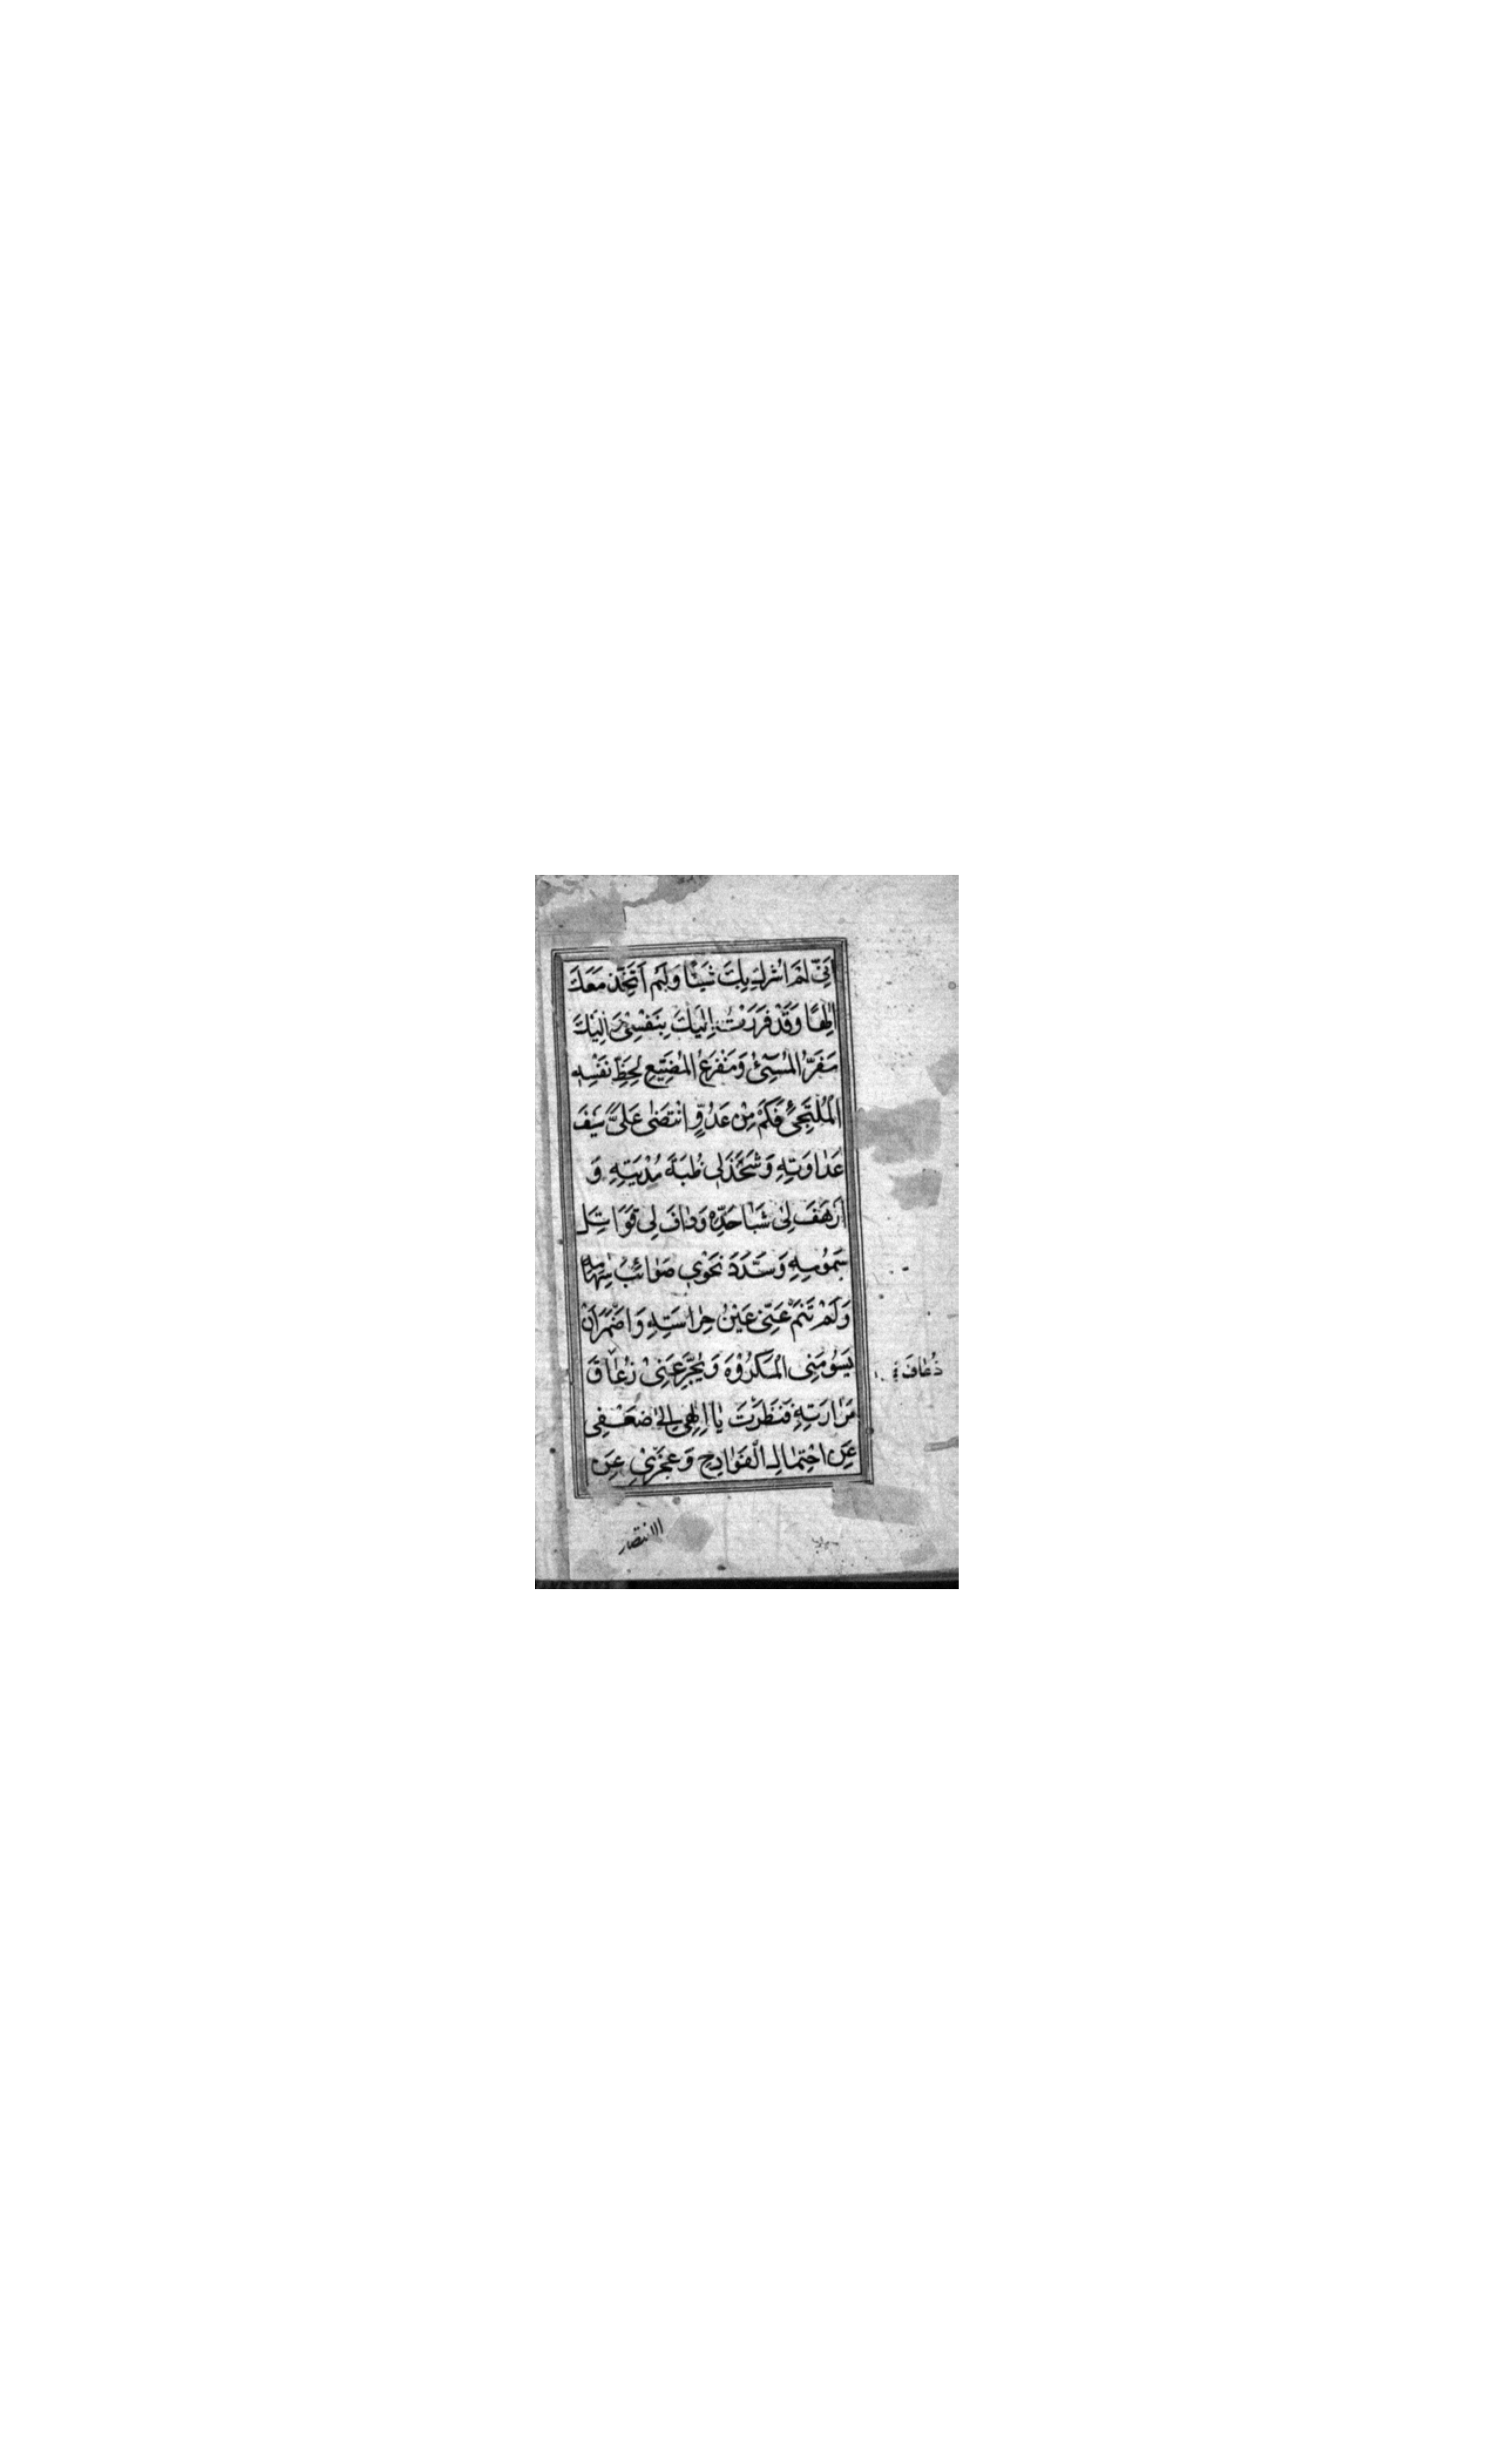 اَنّي لَمْ اُشْرِكْ بِكَ شَيْئًا وَلَمْ اَتَّخِذْ مَعَكَ
اِلٰهًا وَقَدْ فَرَرْتُ اِلَيْكَ بِنَفْسِيْ وَاِلَيْكَ
مَفَرُّ الْمُسِيْئِ وَمَفْزَعُ الْمُضَيِّعِ لِحَظِّ نَفْسِهِ
الْمُلْتَجِئِ فَكَمْ مِنْ عَدُوٍّ انْتَضٰى عَلَيَّ سَيْفَ
عَدَاوَتِهِ وَشَحَذَ لِي ظُبَةَ مُدْيَتِهِ وَ
اَرْهَفَ لِي شَبَا حَدِّهِ وَدَافَ لِي قَوَاتِلَ
سُمُومِهِ وَسَدَّدَ نَحْوِي صَوَائِبَ سِهَامِهِ
وَلَمْ تَنَمْ عَنِّي عَيْنُ حِرَاسَتِهِ وَاَضْمَرَ اَنْ
يَسُومَنِي الْمَكْرُوْهَ وَيُجَرِّعَنِيْ زُعَاقَ
ذُعَافَ
مَرَارَتِهِ فَنَظَرْتَ يَا اِلٰهِي اِلٰى ضَعْفِي
عَنِ احْتِمَالِ الْفَوَادِحِ وَعَجْزِيْ عَنِ
الانتصار